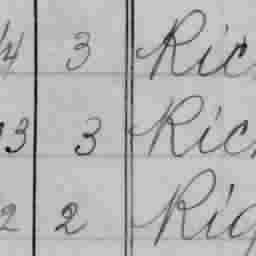 14 3 Ric
13 3 Ric
2 2 Rig